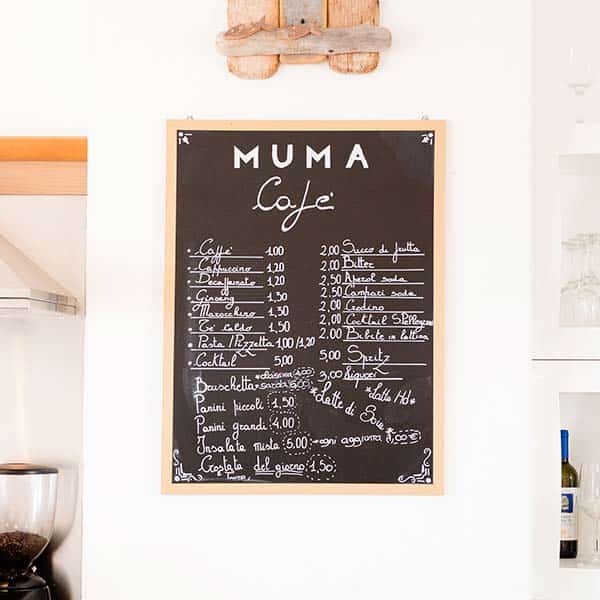 MUMA
Cafè
Caffè 1.00
Cappuccino 1.20
Decaffeinato 1.20
Ginseng 1,30
Marocchino 1.30
Tè caldo 1.50
Pasta/Pizzetta 1,00/1,20
Cocktail 5,00
Bruschetta classica sarda
Panini piccoli 1,50
Panini grandi 4.00
Insalata mista 5.00 ogni aggiunta 1,00€
Crostata del giorno 1,50
2,00 Succo di frutta
2,00 Bitter
2,50 Aperol soda
2.50 Campari soda
2,00 Crodino
2,00 Cocktail
2,00 Bibite in lattina
5,00 Spritz
3,00 Liquori
*Latte Hd*
*Latte di Soia*